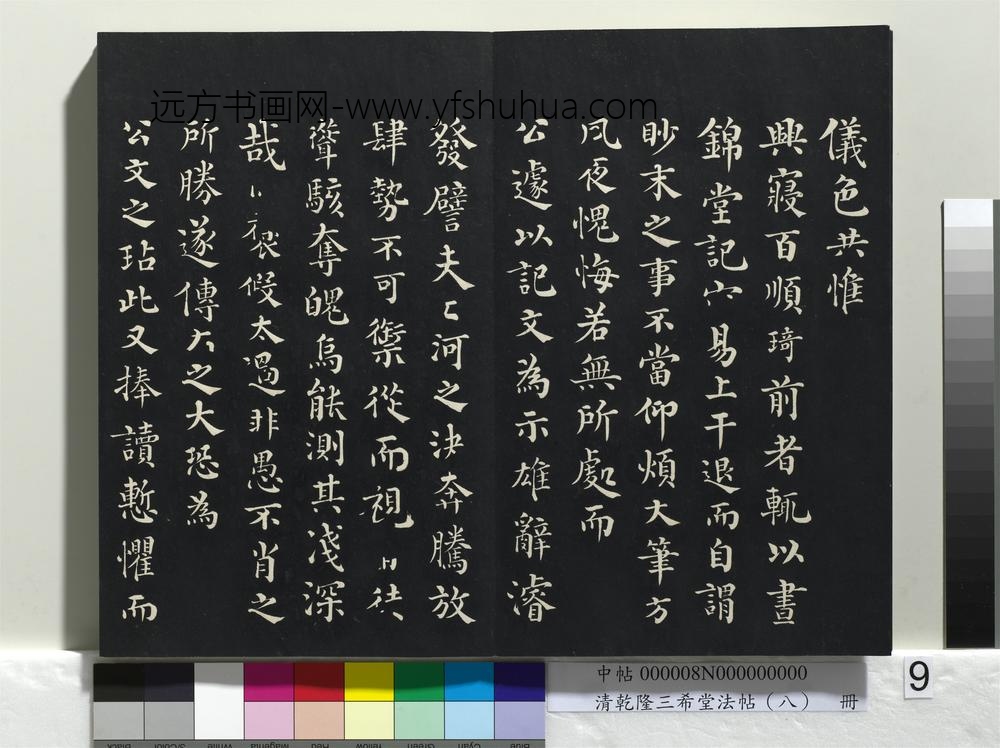 远方书画网-www.yfshuhua.com
儀色共惟
興寢百順琦前者輒以晝
錦堂記易上干退而自謂
眇末之事不當仰煩大筆方
夙夜愧悔若無所處而
公遽以記文為示雄辭濬
發譬夫河之決奔騰放
肆勢不可禦從而視徒
聳駭奪魄烏能測其淺深
哉假太過非愚不肖之
所勝遂傳之大恐為
公文之玷此又捧讀慙懼而
中帖 000008N000000000
清乾隆三希堂法帖（八） 冊
9
Black
3/Color
White
Magenta
Red
Yellow
Green
Cyan
Blue